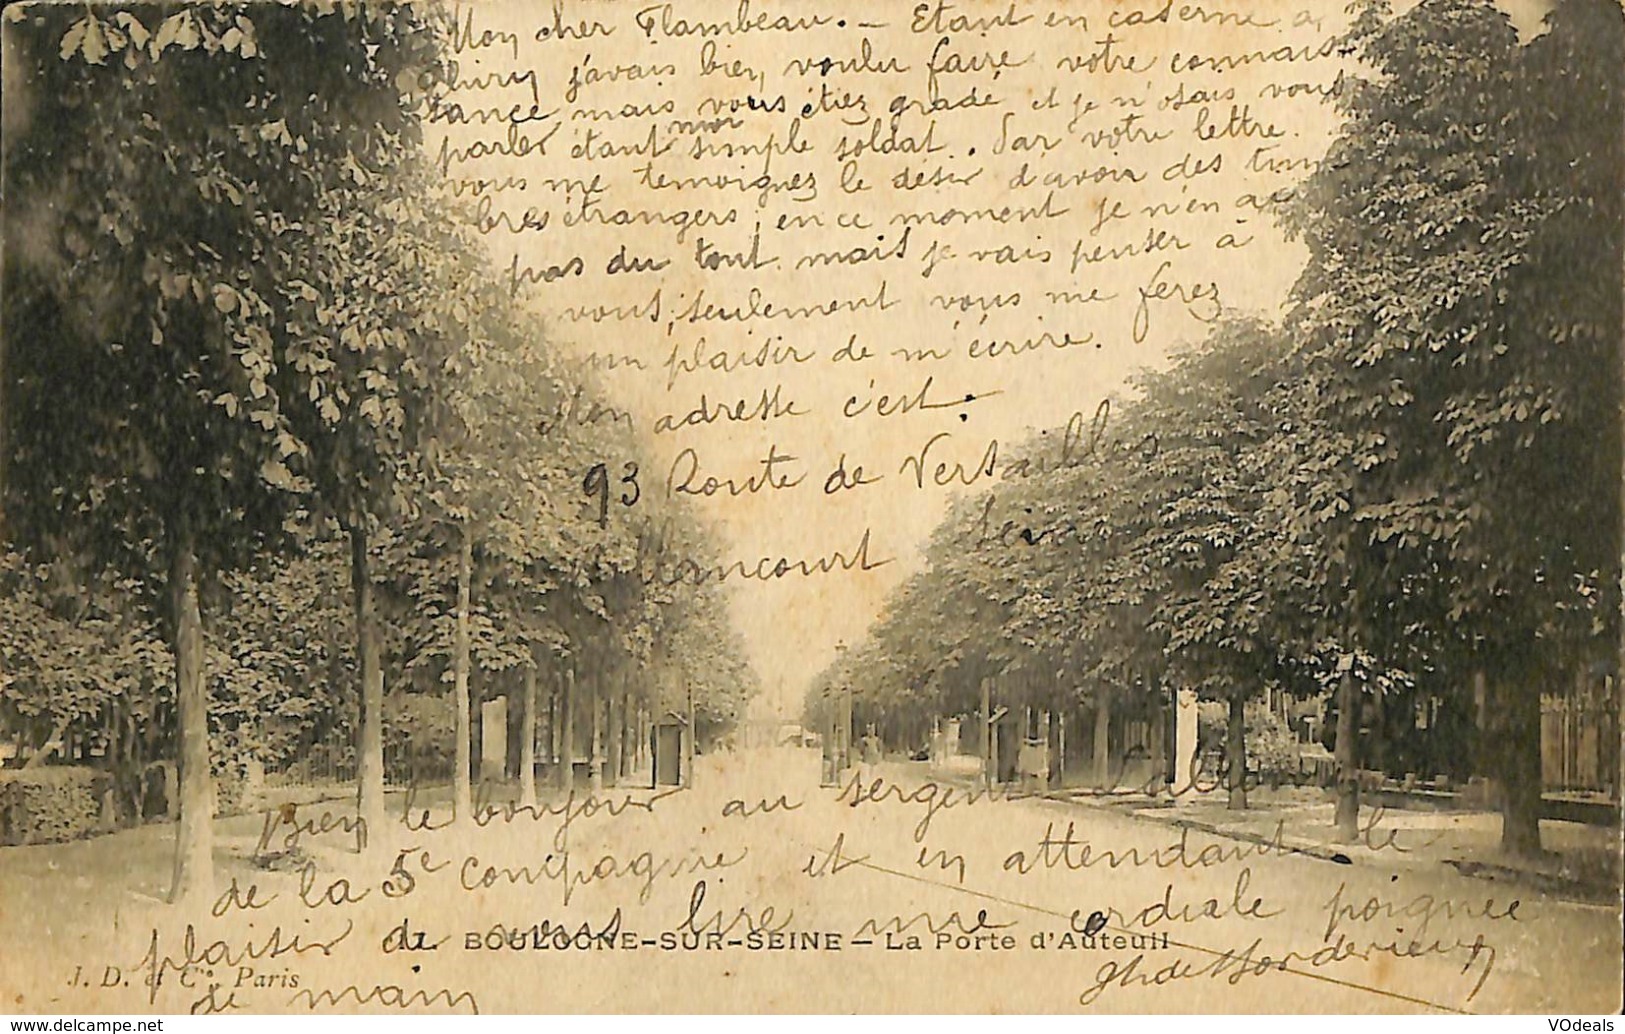 Mon cher Flambeau. — Etant en caserne a
j'avais bien voulu faire votre connais-
sance mais vous étiez gradé et je n'osais vous
parler étant moi simple soldat. Par votre lettre
vous me temoignez le désir d'avoir des tim
bres étrangers; en ce moment je n'en ai
pas du tout mais je vais penser à
vous; seulement vous me ferez
un plaisir de m'écrire.
Mon adresse c'est.
93 Route de Versailles
Billancourt Seine
Bien le bonjour au sergent
de la 5e compagnie et en attendant le
plaisir de vous lire une cordiale poignée
de main
BOULOGNE-SUR-SEINE — La Porte d'Auteuil
J. D. et Cie. Paris
VOdeals